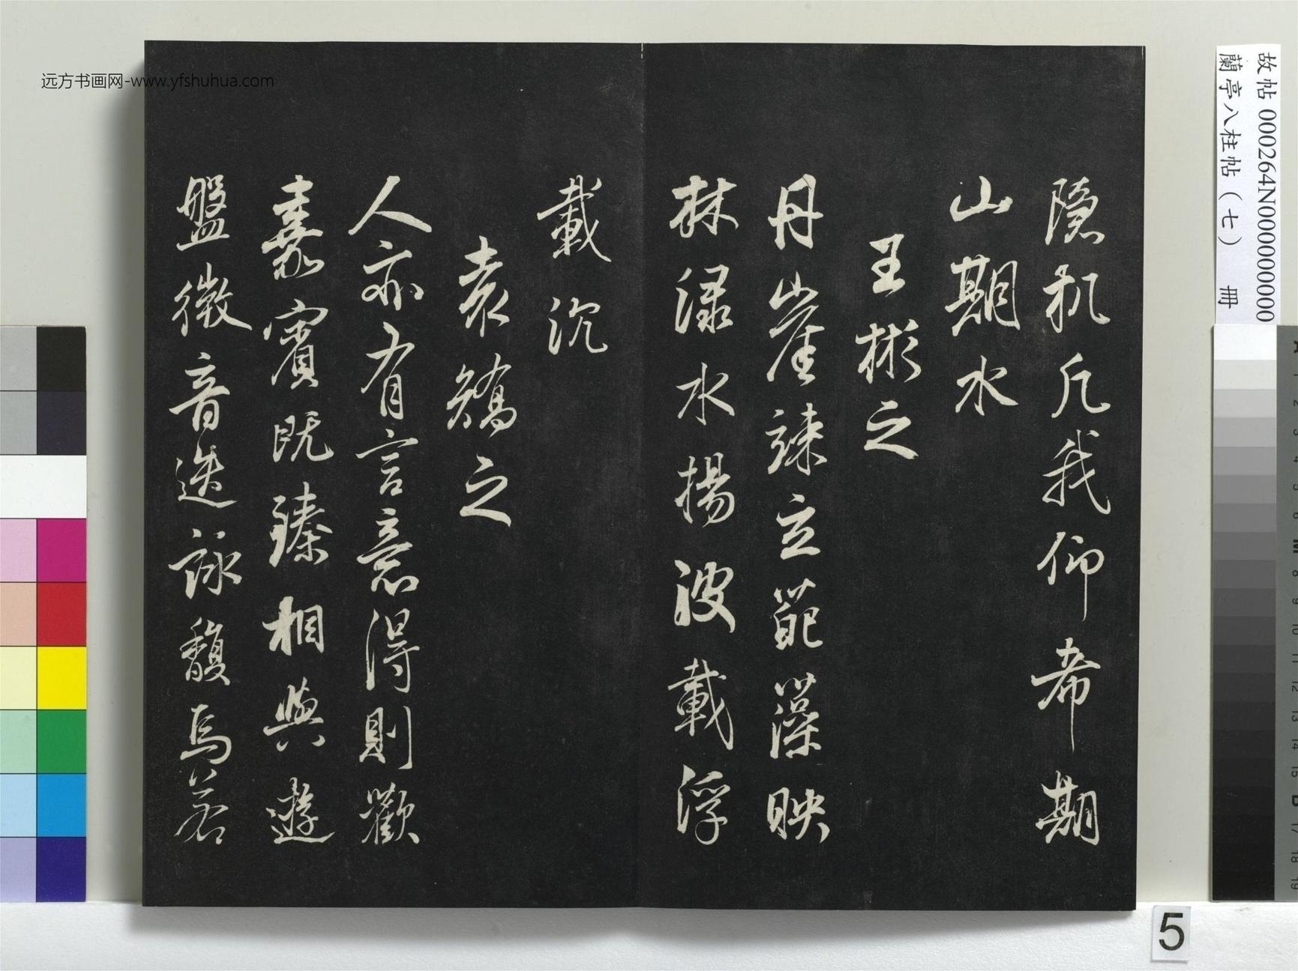 隐机凡我仰希期
山期水
王彬之
丹崖竦立葩藻映
林渌水揚波載浮
載沉
袁矯之
人亦有言意得則歡
嘉賓既臻相與遊
盤微音迭詠馥焉若
远方书画网-www.yfshuhua.com
故帖 000264N000000000
蘭亭八柱帖（七） 冊
5